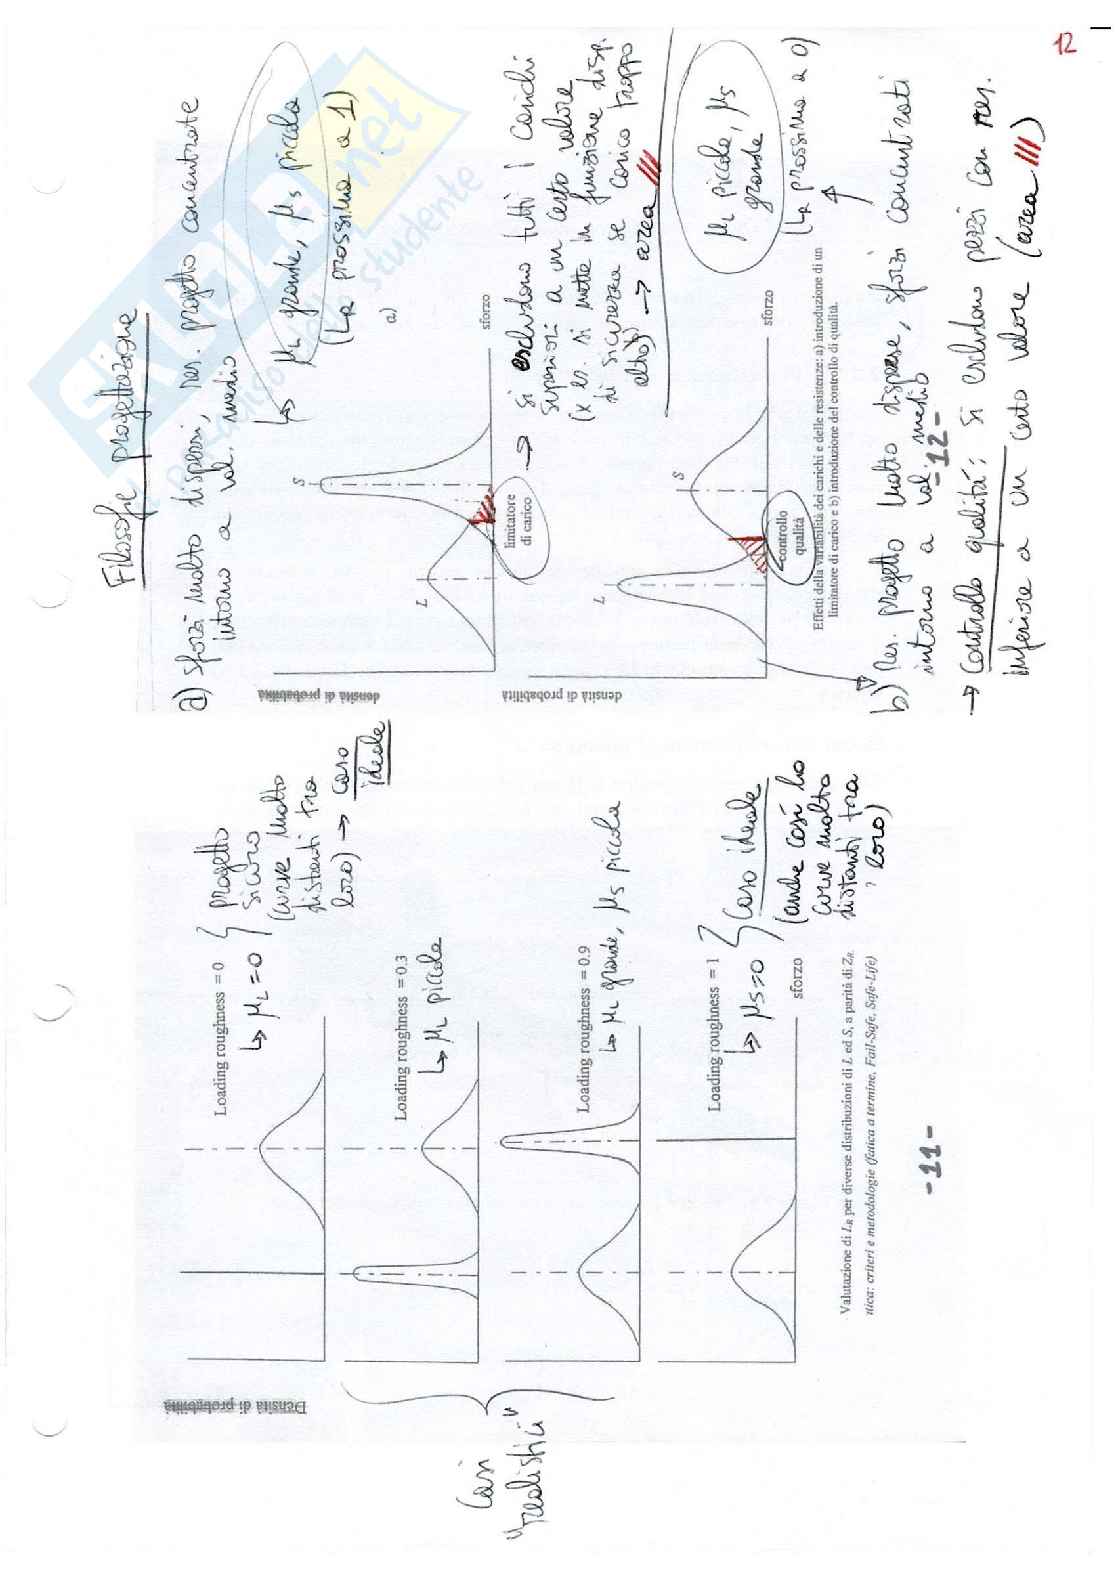 12
Densità di probabilità
Loading roughness = 0
↳ μL = 0
progetto
sicuro
(curve molto
distanti tra
loro) → caso
ideale
Loading roughness = 0.3
↳ μL piccola
Loading roughness = 0.9
↳ μL grande, μs piccola
Loading roughness = 1
↳ μs = 0
sforzo
Caso ideale
(anche così ho
curve molto
distanti tra
loro)
Casi
"realistici"
Valutazione di LR per diverse distribuzioni di L ed S, a parità di ZR
nica: criteri e metodologie (fatica a termine, Fail-Safe, Safe-Life)
-11-
Filosofie progettazione
a) Sforzi molto dispersi, res. progetto concentrate
intorno a val. medio
↳ μL grande, μs piccola
(LR prossima a 1)
densità di probabilità
L
S
sforzo
a)
limitatore
di carico
→ si escludono tutti i carichi
superiori a un certo valore
(x es. si mette in funzione disp.
di sicurezza se carico troppo
alto) → area
densità di probabilità
L
S
sforzo
controllo
qualità
μL piccola, μs
grande
(LR prossima a 0)
Effetti della variabilità dei carichi e delle resistenze: a) introduzione di un
limitatore di carico e b) introduzione del controllo di qualità.
b) Res. progetto molto disperse, sforzi concentrati
intorno a val. medio
-12-
→ Controllo qualità: si escludono pezzi con res.
inferiore a un certo valore (area )
SKUOLA.net
il paradiso dello studente